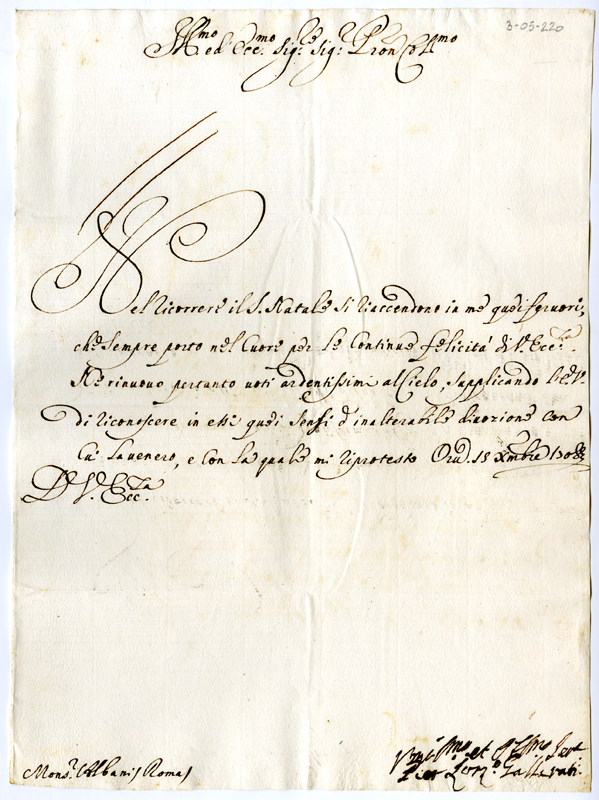 3-05-220
Ill.mo ed Ecc.mo Sig.re Sig.r P.ron Coll.mo
Nel ricorrere il S. Natale si riaccendono in me quei feruori,
che sempre porto nel Cuore per le Continue felicità di V. Ecc.za
Ne rinuouo pertanto uoti ardentissimi al Cielo, supplicando l'E.V.
di riconoscere in essi quei sensi d'inalterabile diuozione con
Cui la uenero, e con la quale mi riprotesto 15 Xmbre 1708
D. V. Ecc.za
Mons.r Albani Roma
et
Pier